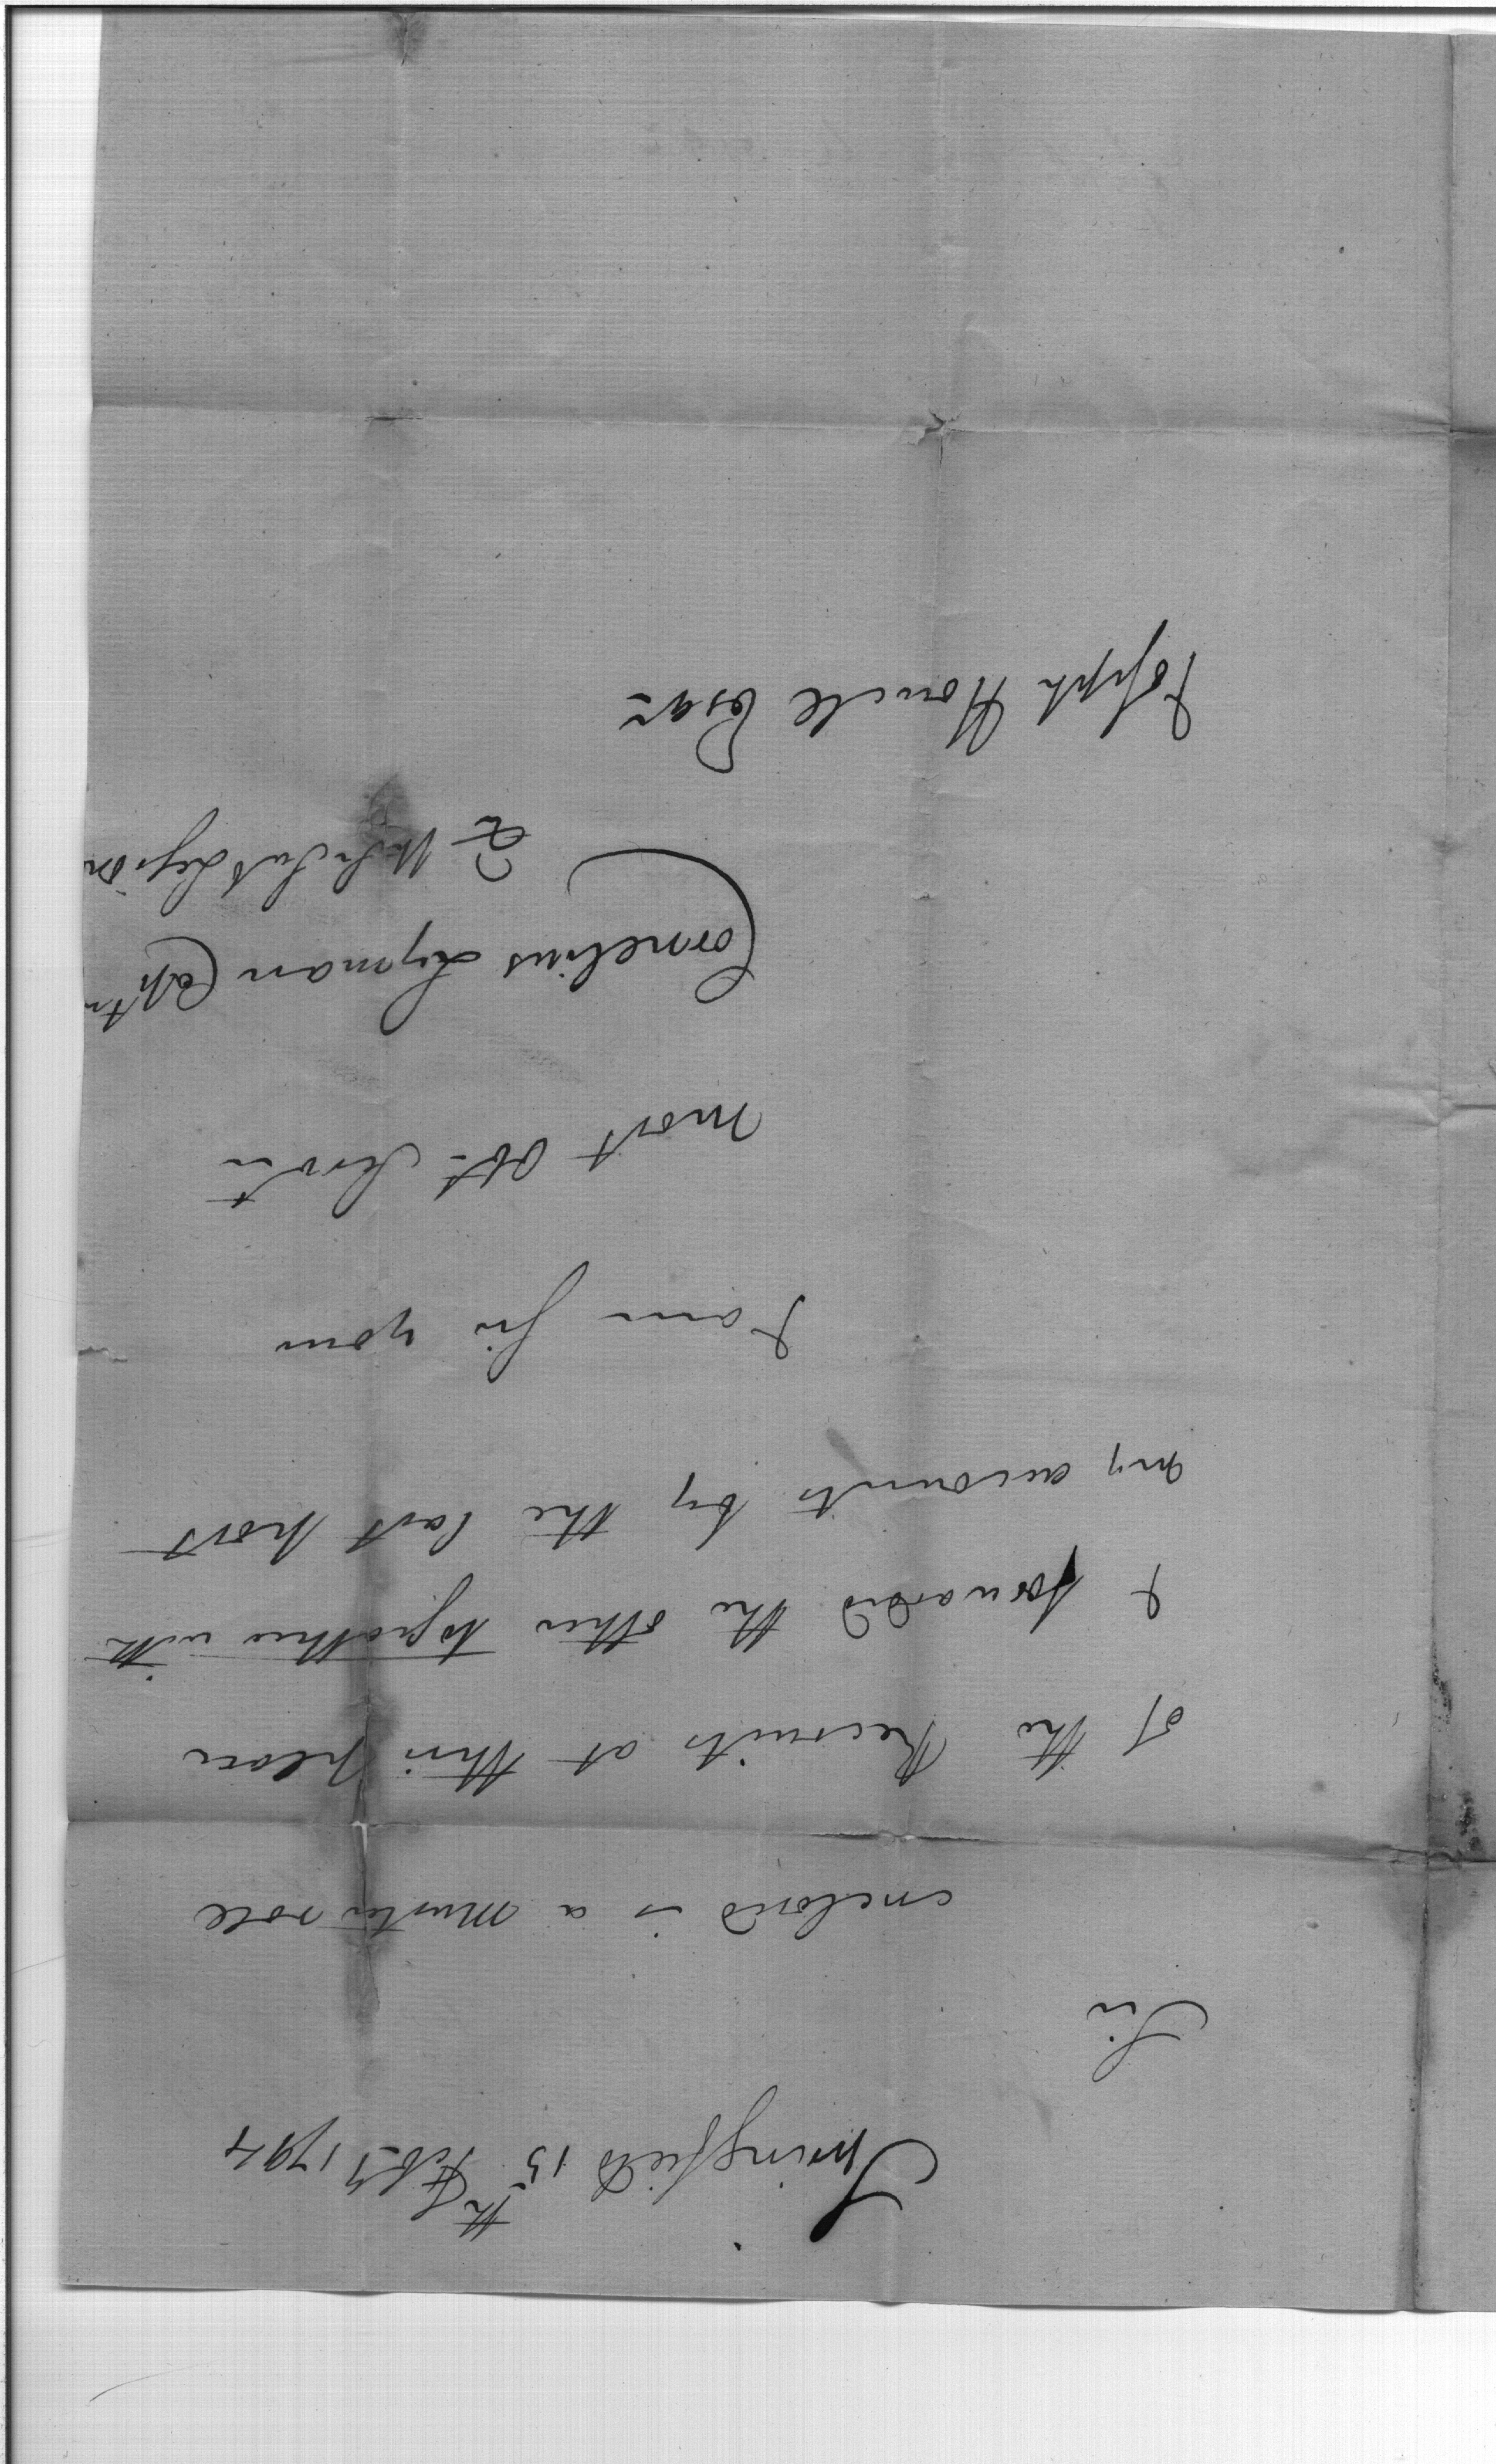 Springfield 15th Feby 1794
Sir
enclosed is a muster role
of the Recruits at this place
I forwarded the other together with
my accounts by the last post
I am Sir your
most obt. Servt
Cornelius Lyman Captn
2d Legion
Joseph Howell Esqr